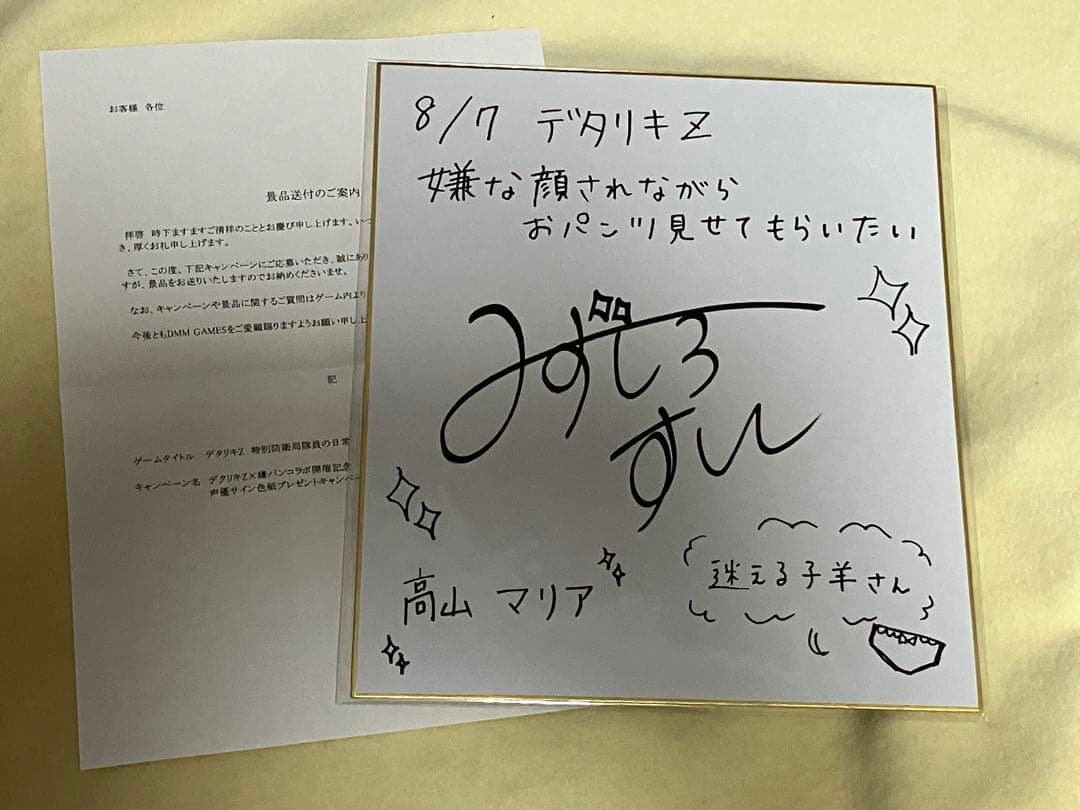 お客様 各位
景品送付のご案内
拝啓 時下ますますご清祥のこととお慶び申し上げます。いつ
き、厚くお礼申し上げます。
さて、この度、下記キャンペーンにご応募いただき、誠にあり
すが、景品をお送りいたしますのでお納めくださいませ。
なお、キャンペーンや景品に関するご質問はゲーム内より
今後ともDMM GAMESをご愛顧賜りますようお願い申し上
記
ゲームタイトル デタリキZ 特別防衛局隊員の日常
キャンペーン名 デタリキZ×嫌パンコラボ開催記念
声優サイン色紙プレゼントキャンペー
8/7 デタリキZ
嫌な顔されながら
おパンツ見せてもらいたい
みずしろ
すい
高山 マリア
迷える子羊さん